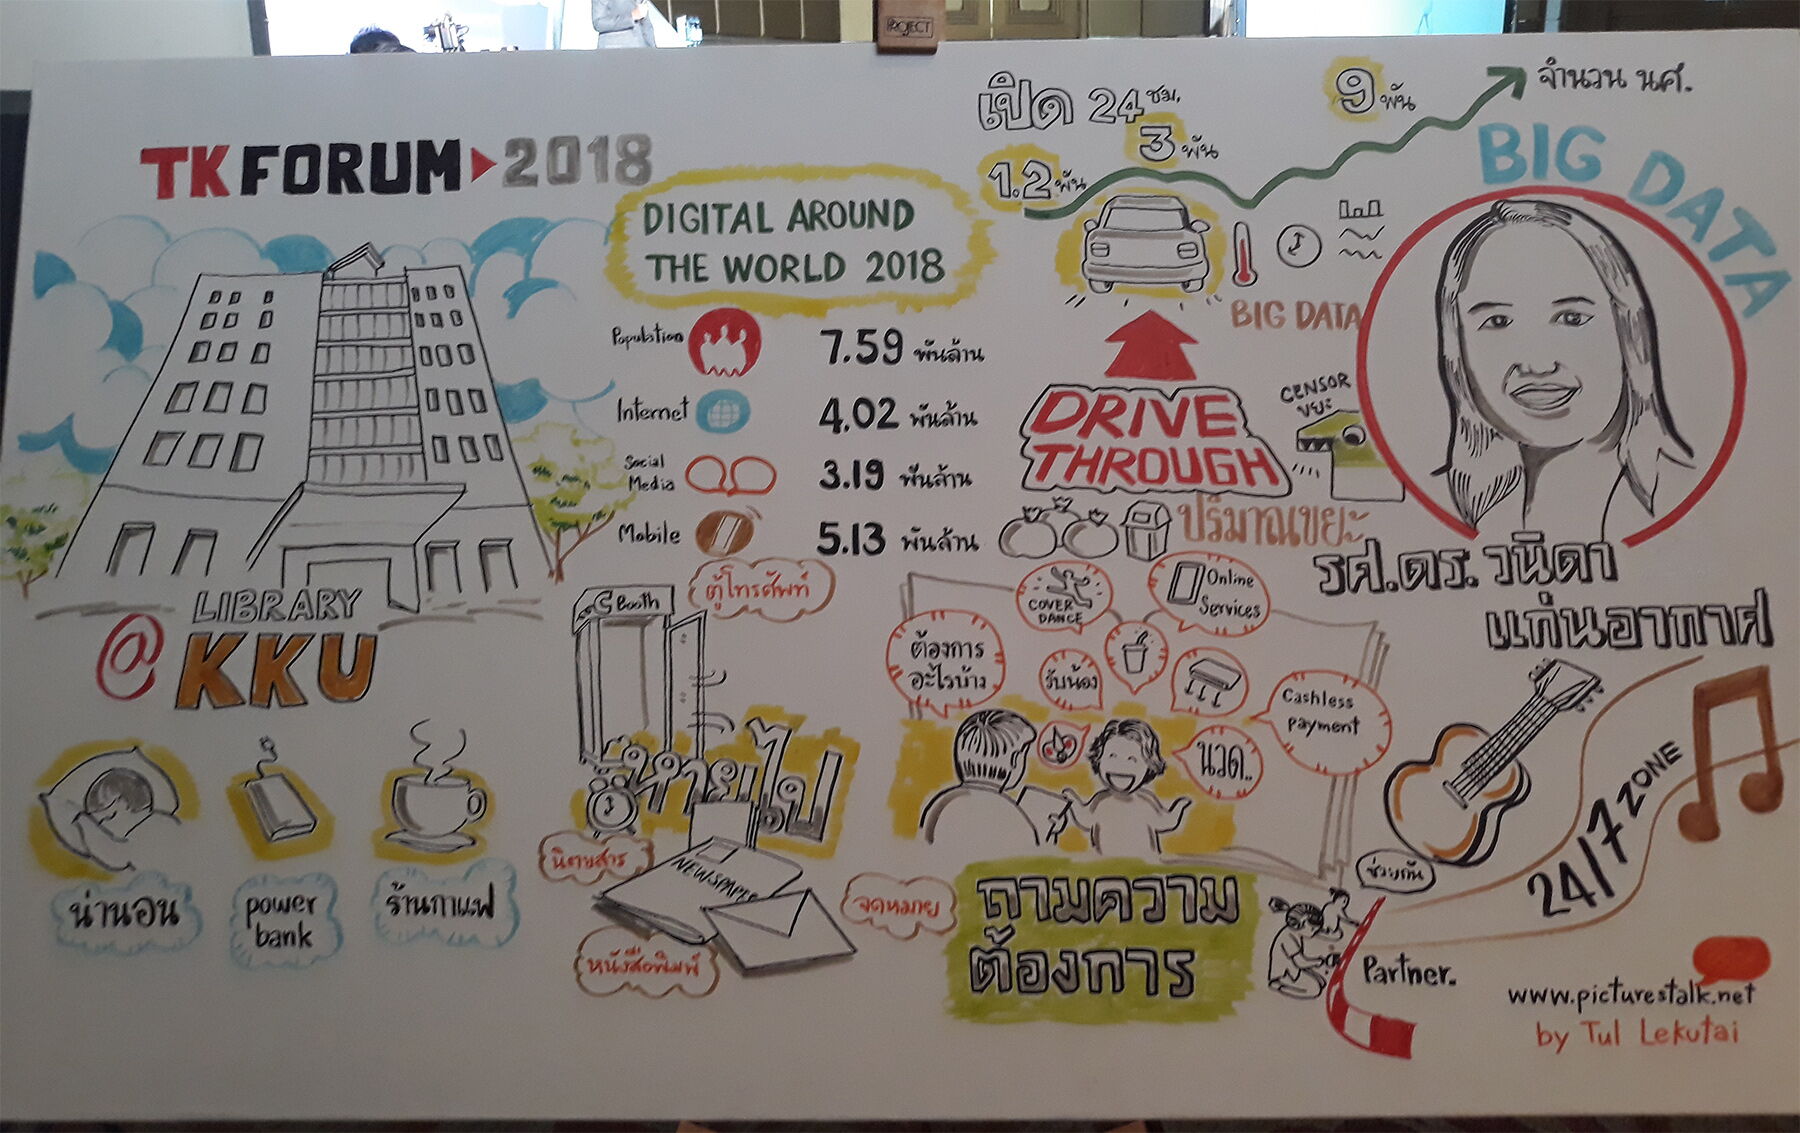 PROJECT
TK FORUM 2018
DIGITAL AROUND
THE WORLD 2018
Population 7.59 พันล้าน
Internet 4.02 พันล้าน
Social
Media 3.19 พันล้าน
Mobile 5.13 พันล้าน
เปิด 24 ชม.
1.2 พัน
3 พัน
9 พัน
จำนวน นศ.
BIG DATA
BIG DATA
DRIVE
THROUGH
CENSOR
ขยะ
ปริมาณขยะ
รศ.ดร. วนิดา
แก่นอากาศ
LIBRARY
@KKU
น่านอน
power
bank
ร้านกาแฟ
C Booth
ตู้โทรศัพท์
หายไป
นิตยสาร
NEWSPAPER
หนังสือพิมพ์
จดหมาย
ต้องการ
อะไรบ้าง
COVER
DANCE
Online
Services
รับน้อง
Cashless
payment
นวด..
ถามความ
ต้องการ
24/7 ZONE
ช่วยกัน
Partner.
www.picturestalk.net
by Tul Lekutai